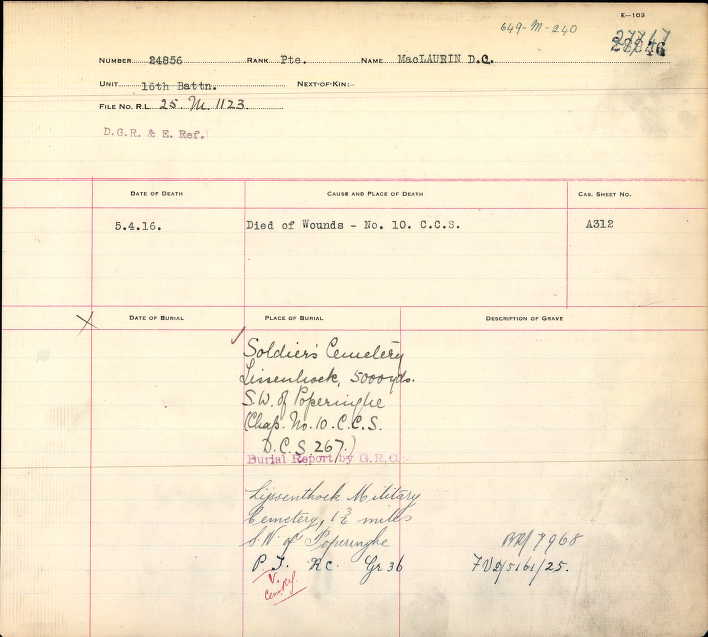 E—103
649-M-240
NUMBER 24856 RANK Pte. NAME MacLAURIN D.C.
UNIT 16th Battn. NEXT-OF-KIN:-
FILE NO. R.L. 25. M. 1123
D.G.R. & E. Ref.
DATE OF DEATH CAUSE AND PLACE OF DEATH CAS. SHEET NO.
5.4.16. Died of Wounds - No. 10. C.C.S. A312
DATE OF BURIAL PLACE OF BURIAL DESCRIPTION OF GRAVE
Soldier's Cemetery
Lissenhoek, 5000 yds.
S.W. of Poperinghe
(Chap. No. 10. C.C.S.
D.C.S. 267.)
Burial Report by G.R.O.
Lijssenthoek Military
Cemetery, 1¾ miles
S.W. of Poperinghe
P. I. R.C. Gr 36
V.
7968